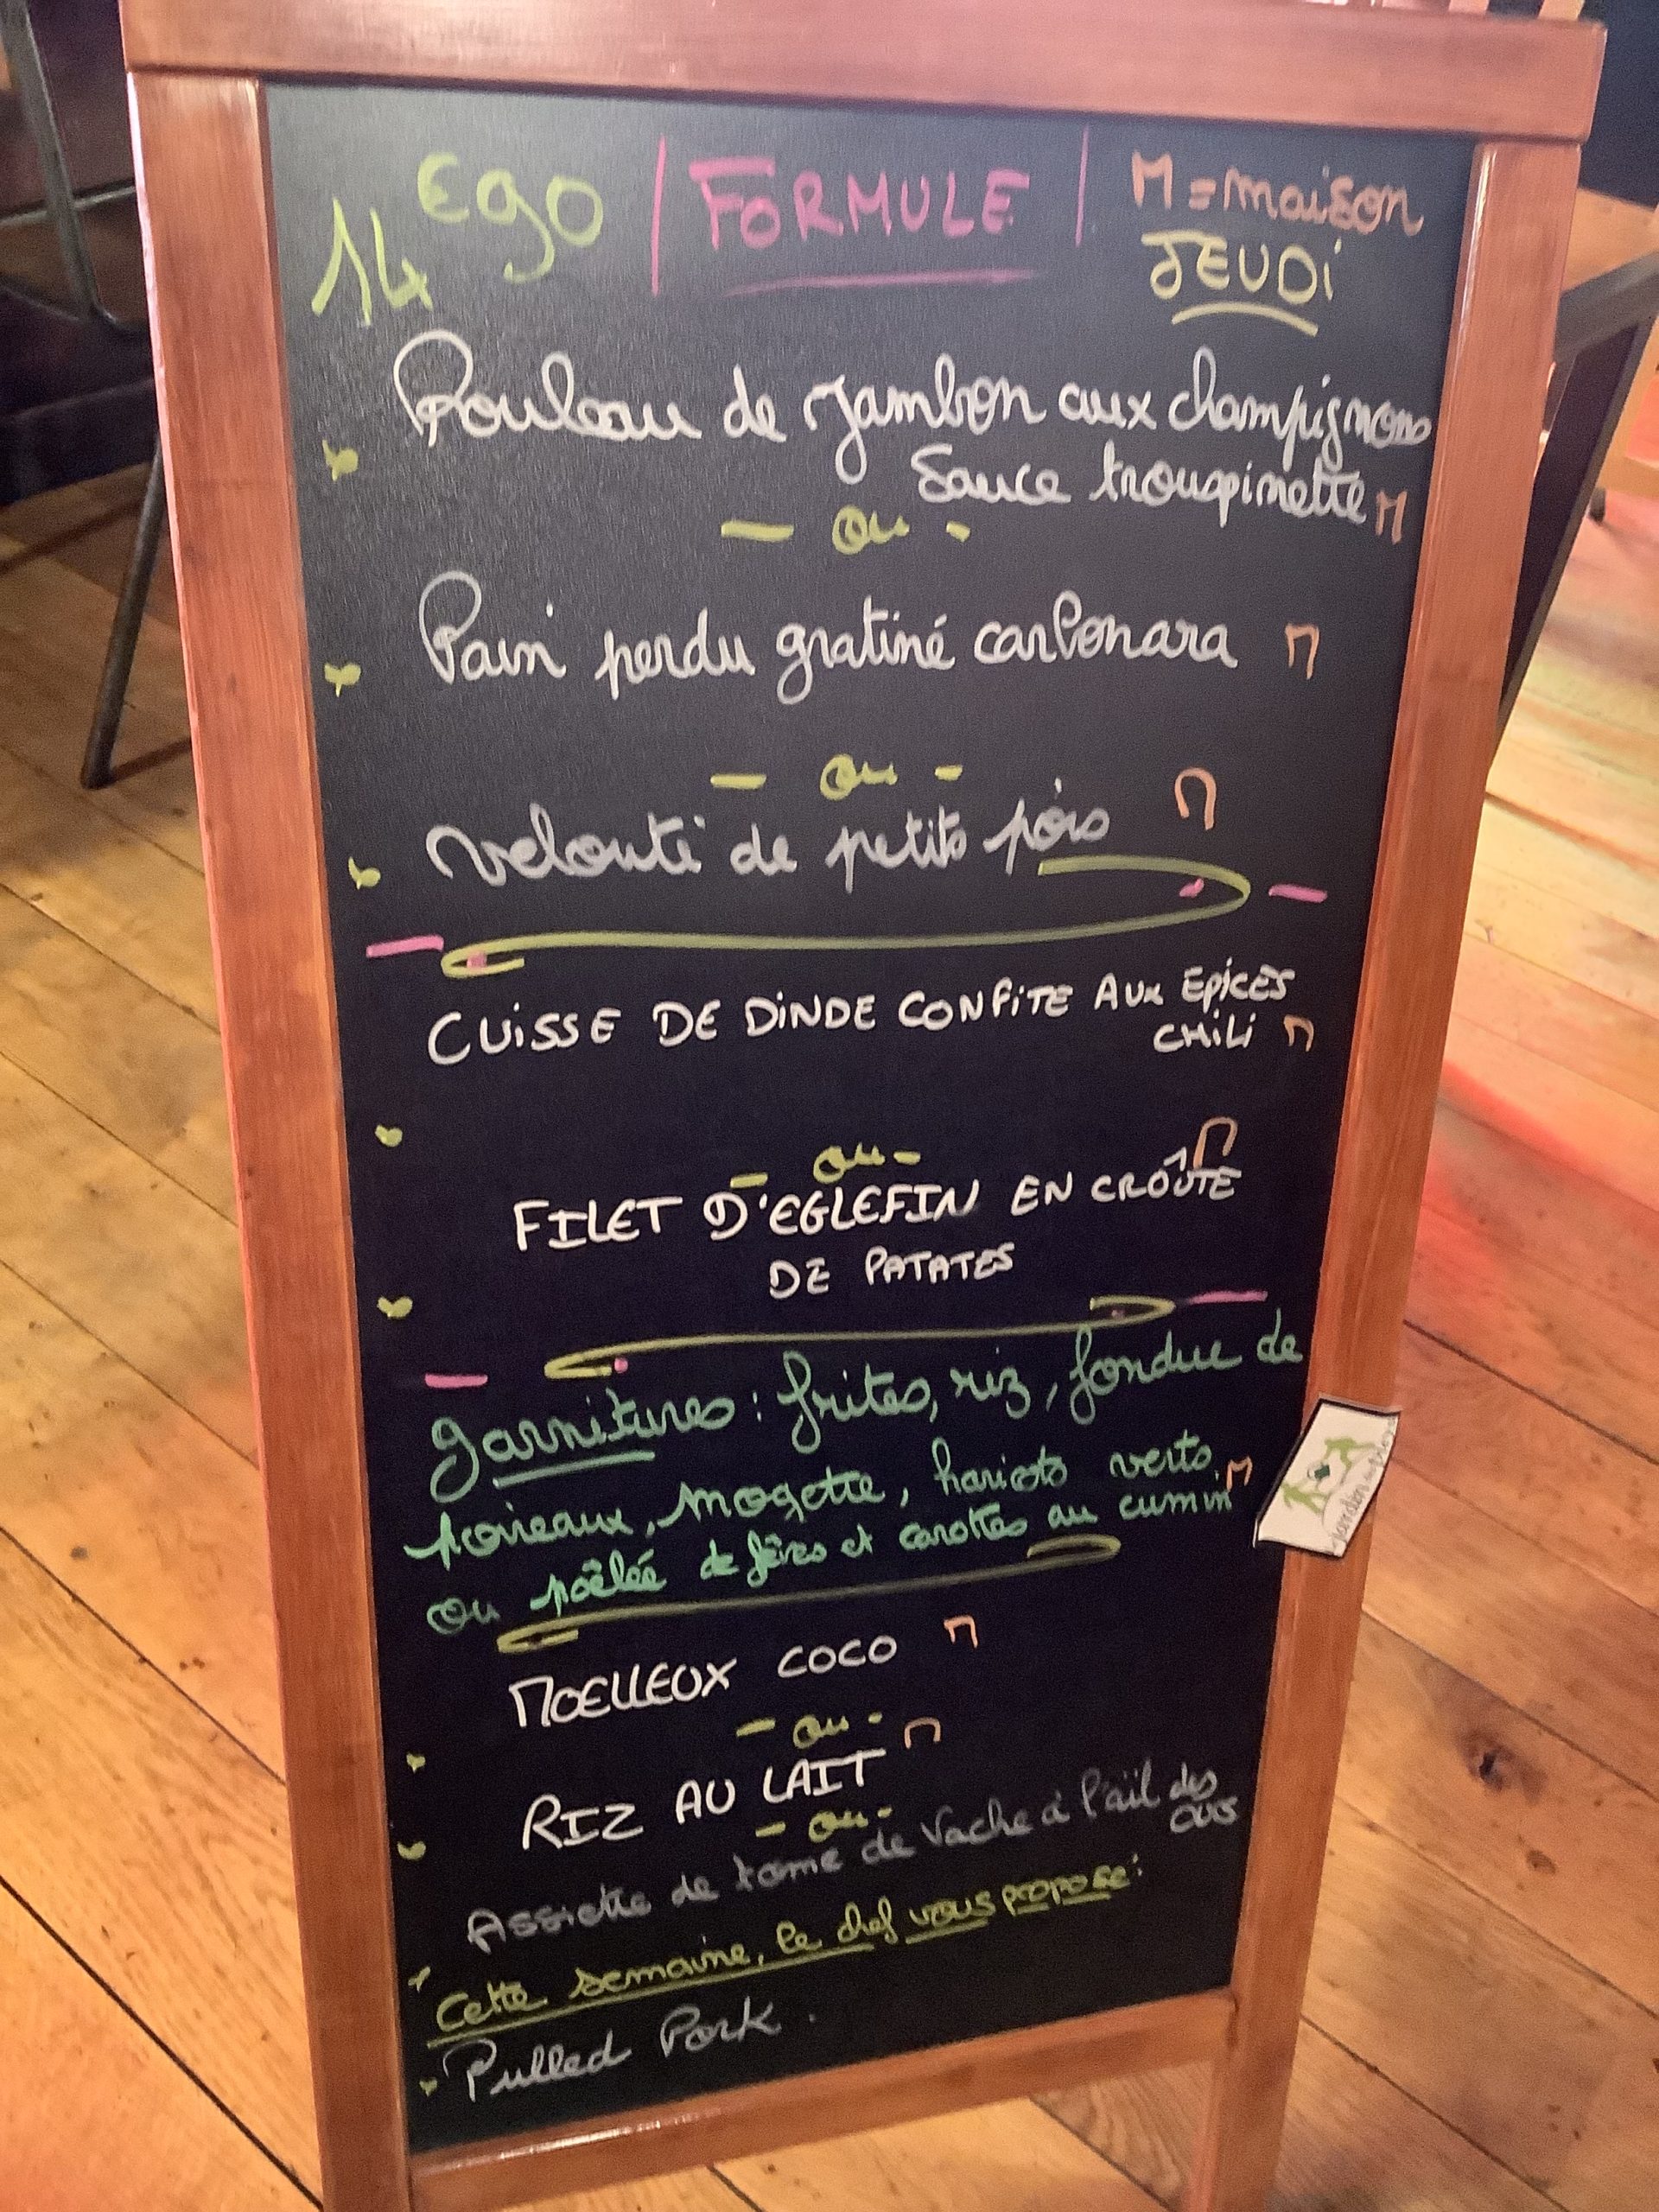 14€90 | FORMULE | M = maison
JEUDi
Rouleau de Jambon aux champignons
Sauce trouspinette M
- ou -
Pain perdu gratiné carbonara M
- ou -
Velouté de petits pois M
CUiSSE DE DiNDE CONFiTE AUX EPiCES
CHiLi M
- ou -
FILET D'EGLEFIN EN CROÛTE M
DE PATATES
garnitures : frites, riz, fondue de
poireaux, mogette, haricots verts
ou poêlée de fèves et carottes au cumin M
MOELLEUX COCO M
- ou -
RIZ AU LAIT M
- ou -
Assiette de tome de vache à l'ail des
ours
Cette semaine, le chef vous propose :
Pulled Pork.